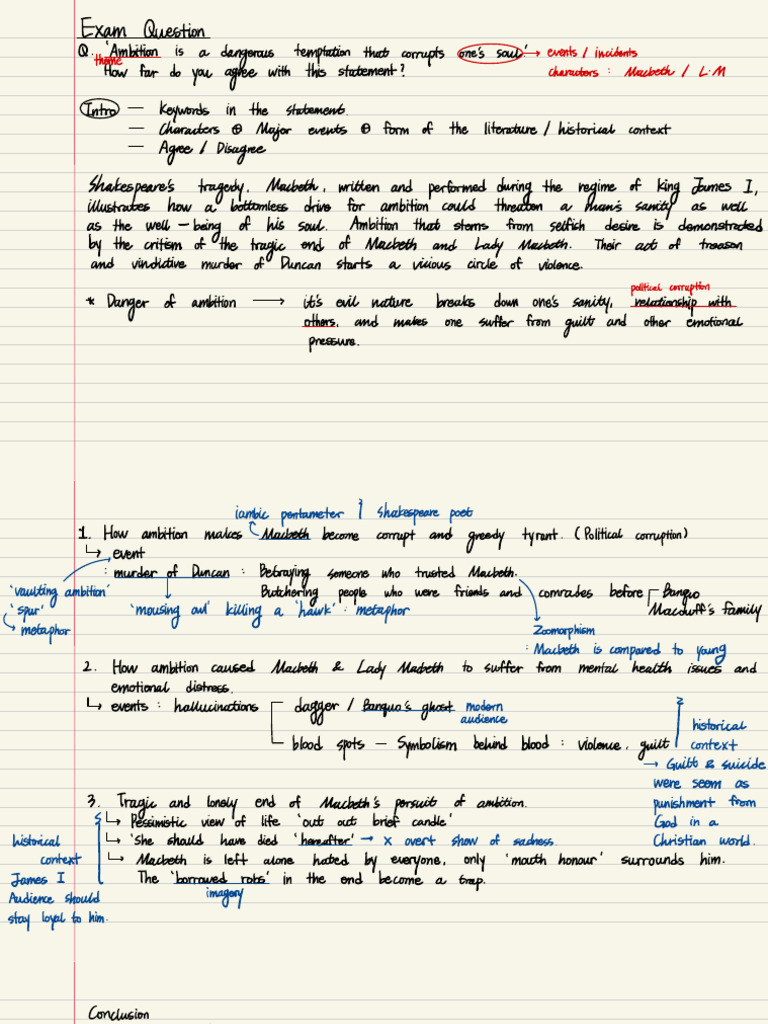 Exam Question
Q. 'Ambition is a dangerous temptation that corrupts one's soul.' → events / incidents
theme
How far do you agree with this statement? characters : Macbeth / L.M
Intro — Keywords in the statement.
— Characters ⊕ Major events ⊕ form of the literature / historical context
— Agree / Disagree
Shakespeare's tragedy, Macbeth, written and performed during the regime of king James I,
illustrates how a bottomless drive for ambition could threaten a man's sanity as well
as the well-being of his soul. Ambition that stems from selfish desire is demonstrated
by the critism of the tragic end of Macbeth and Lady Macbeth. Their act of treason
and vindictive murder of Duncan starts a vicious circle of violence.
political corruption
* Danger of ambition → it's evil nature breaks down one's sanity, relationship with
others, and makes one suffer from guilt and other emotional
pressure.
iambic pentameter Shakespeare poet
1. How ambition makes Macbeth become corrupt and greedy tyrant. (Political corruption)
↳ event
: murder of Duncan : Betraying someone who trusted Macbeth.
'vaulting ambition' Butchering people who were friends and comrades before Banquo
'spur' 'mousing owl' killing a 'hawk' : metaphor Macduff's family
→ metaphor
Zoomorphism
: Macbeth is compared to young
2. How ambition caused Macbeth & Lady Macbeth to suffer from mental health issues and
emotional distress.
↳ events : hallucinations dagger / Banquo's ghost modern
audience
blood spots — Symbolism behind blood : violence, guilt
historical
context
→ Guilt & suicide
were seem as
punishment from
God in a
Christian world.
3. Tragic and lonely end of Macbeth's persuit of ambition.
↳ Pessimistic view of life 'out out brief candle'
↳ 'She should have died 'hereafter' → x overt show of sadness.
↳ Macbeth is left alone hated by everyone, only 'mouth honour' surrounds him.
The 'borrowed robs' in the end become a trap.
imagery
historical
context
James I
Audience should
stay loyal to him.
Conclusion